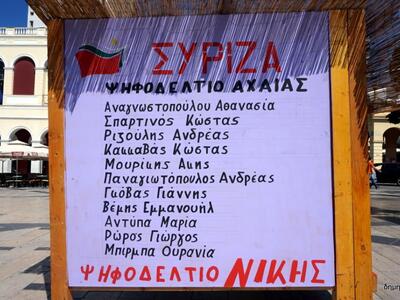 ΣΥΡΙΖΑ
ΨΗΦΟΔΕΛΤΙΟ ΑΧΑΪΑΣ
Αναγνωστοπούλου Αθανασία
Σπαρτινός Κώστας
Ριζούλης Ανδρέας
Καμαβάς Κώστας
Μουρίκης Άκης
Παναγιωτόπουλος Ανδρέας
Γιόβας Γιάννης
Βέμης Εμμανουήλ
Αντύπα Μαρία
Ρώρος Γιώργος
Μπιρμπα Ουρανία
ΨΗΦΟΔΕΛΤΙΟ ΝΙΚΗΣ